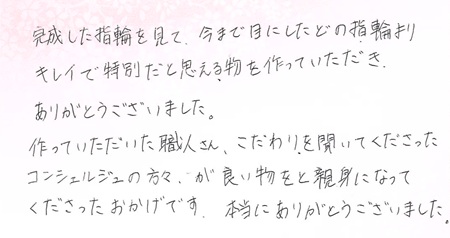 完成した指輪を見て、今まで目にしたどの指輪より
キレイで特別だと思える物を作っていただき、
ありがとうございました。
作っていただいた職人さん、こだわりを聞いてくださった
コンシェルジュの方々、が良い物をと親身になって
くださったおかげです。本当にありがとうございました。